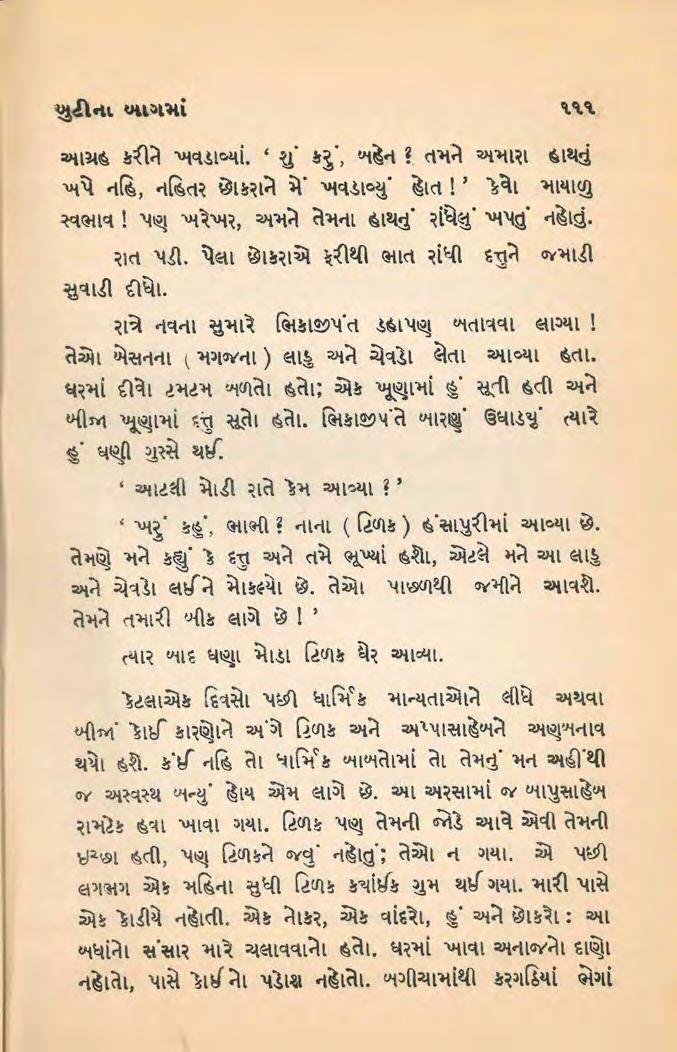 બુટીના બાગમાં ૧૧૧
આગ્રહ કરીને ખવડાવ્યાં. ‘ શું કરું, બહેન ? તમને અમારા હાથનું
ખપે નહિ, નહિતર છોકરાને મેં ખવડાવ્યું હોત ! ’ કેવો માયાળુ
સ્વભાવ ! પણ ખરેખર, અમને તેમના હાથનું રાંધેલું ખપતું નહોતું.
રાત પડી. પેલા છોકરાએ ફરીથી ભાત રાંધી દત્તુને જમાડી
સુવાડી દીધો.
રાત્રે નવના સુમારે ભિકાજીપંત ડહાપણ બતાવવા લાગ્યા !
તેઓ બેસનના ( મગજના ) લાડુ અને ચેવડો લેતા આવ્યા હતા.
ઘરમાં દીવો ટમટમ બળતો હતો; એક ખૂણામાં હું સૂતી હતી અને
બીજા ખૂણામાં દત્તુ સૂતો હતો. ભિકાજીપંતે બારણું ઉઘાડ્યું ત્યારે
હું ઘણી ગુસ્સે થઈ.
‘ આટલી મોડી રાતે કેમ આવ્યા ? ’
‘ ખરું કહું, ભાભી ? નાના ( ટિળક ) હંસાપુરીમાં આવ્યા છે.
તેમણે મને કહ્યું કે દત્તુ અને તમે ભૂખ્યાં હશો, એટલે મને આ લાડુ
અને ચેવડો લઈને મોકલ્યો છે. તેઓ પાછળથી જમીને આવશે.
તેમને તમારી બીક લાગે છે ! ’
ત્યાર બાદ ઘણા મોડા ટિળક ઘેર આવ્યા.
કેટલાએક દિવસો પછી ધાર્મિક માન્યતાઓને લીધે અથવા
બીજાં કોઈ કારણોને અંગે ટિળક અને અપ્પાસાહેબને અણબનાવ
થયો હશે. કંઈ નહિ તો ધાર્મિક બાબતોમાં તો તેમનું મન અહીંથી
જ અસ્વસ્થ બન્યું હોય એમ લાગે છે. આ અરસામાં જ બાપુસાહેબ
રામટેક હવા ખાવા ગયા. ટિળક પણ તેમની જોડે આવે એવી તેમની
ઇચ્છા હતી, પણ ટિળકને જવું નહોતું; તેઓ ન ગયા. એ પછી
લગભગ એક મહિના સુધી ટિળક ક્યાંઈક ગુમ થઈ ગયા. મારી પાસે
એક કોડીયે નહોતી. એક નોકર, એક વાંદરો, હું અને છોકરો : આ
બધાંનો સંસાર મારે ચલાવવાનો હતો. ઘરમાં ખાવા અનાજનો દાણો
નહોતો, પાસે કોઈનો પડોશ નહોતો. બગીચામાંથી કરગઠિયાં ભેગાં